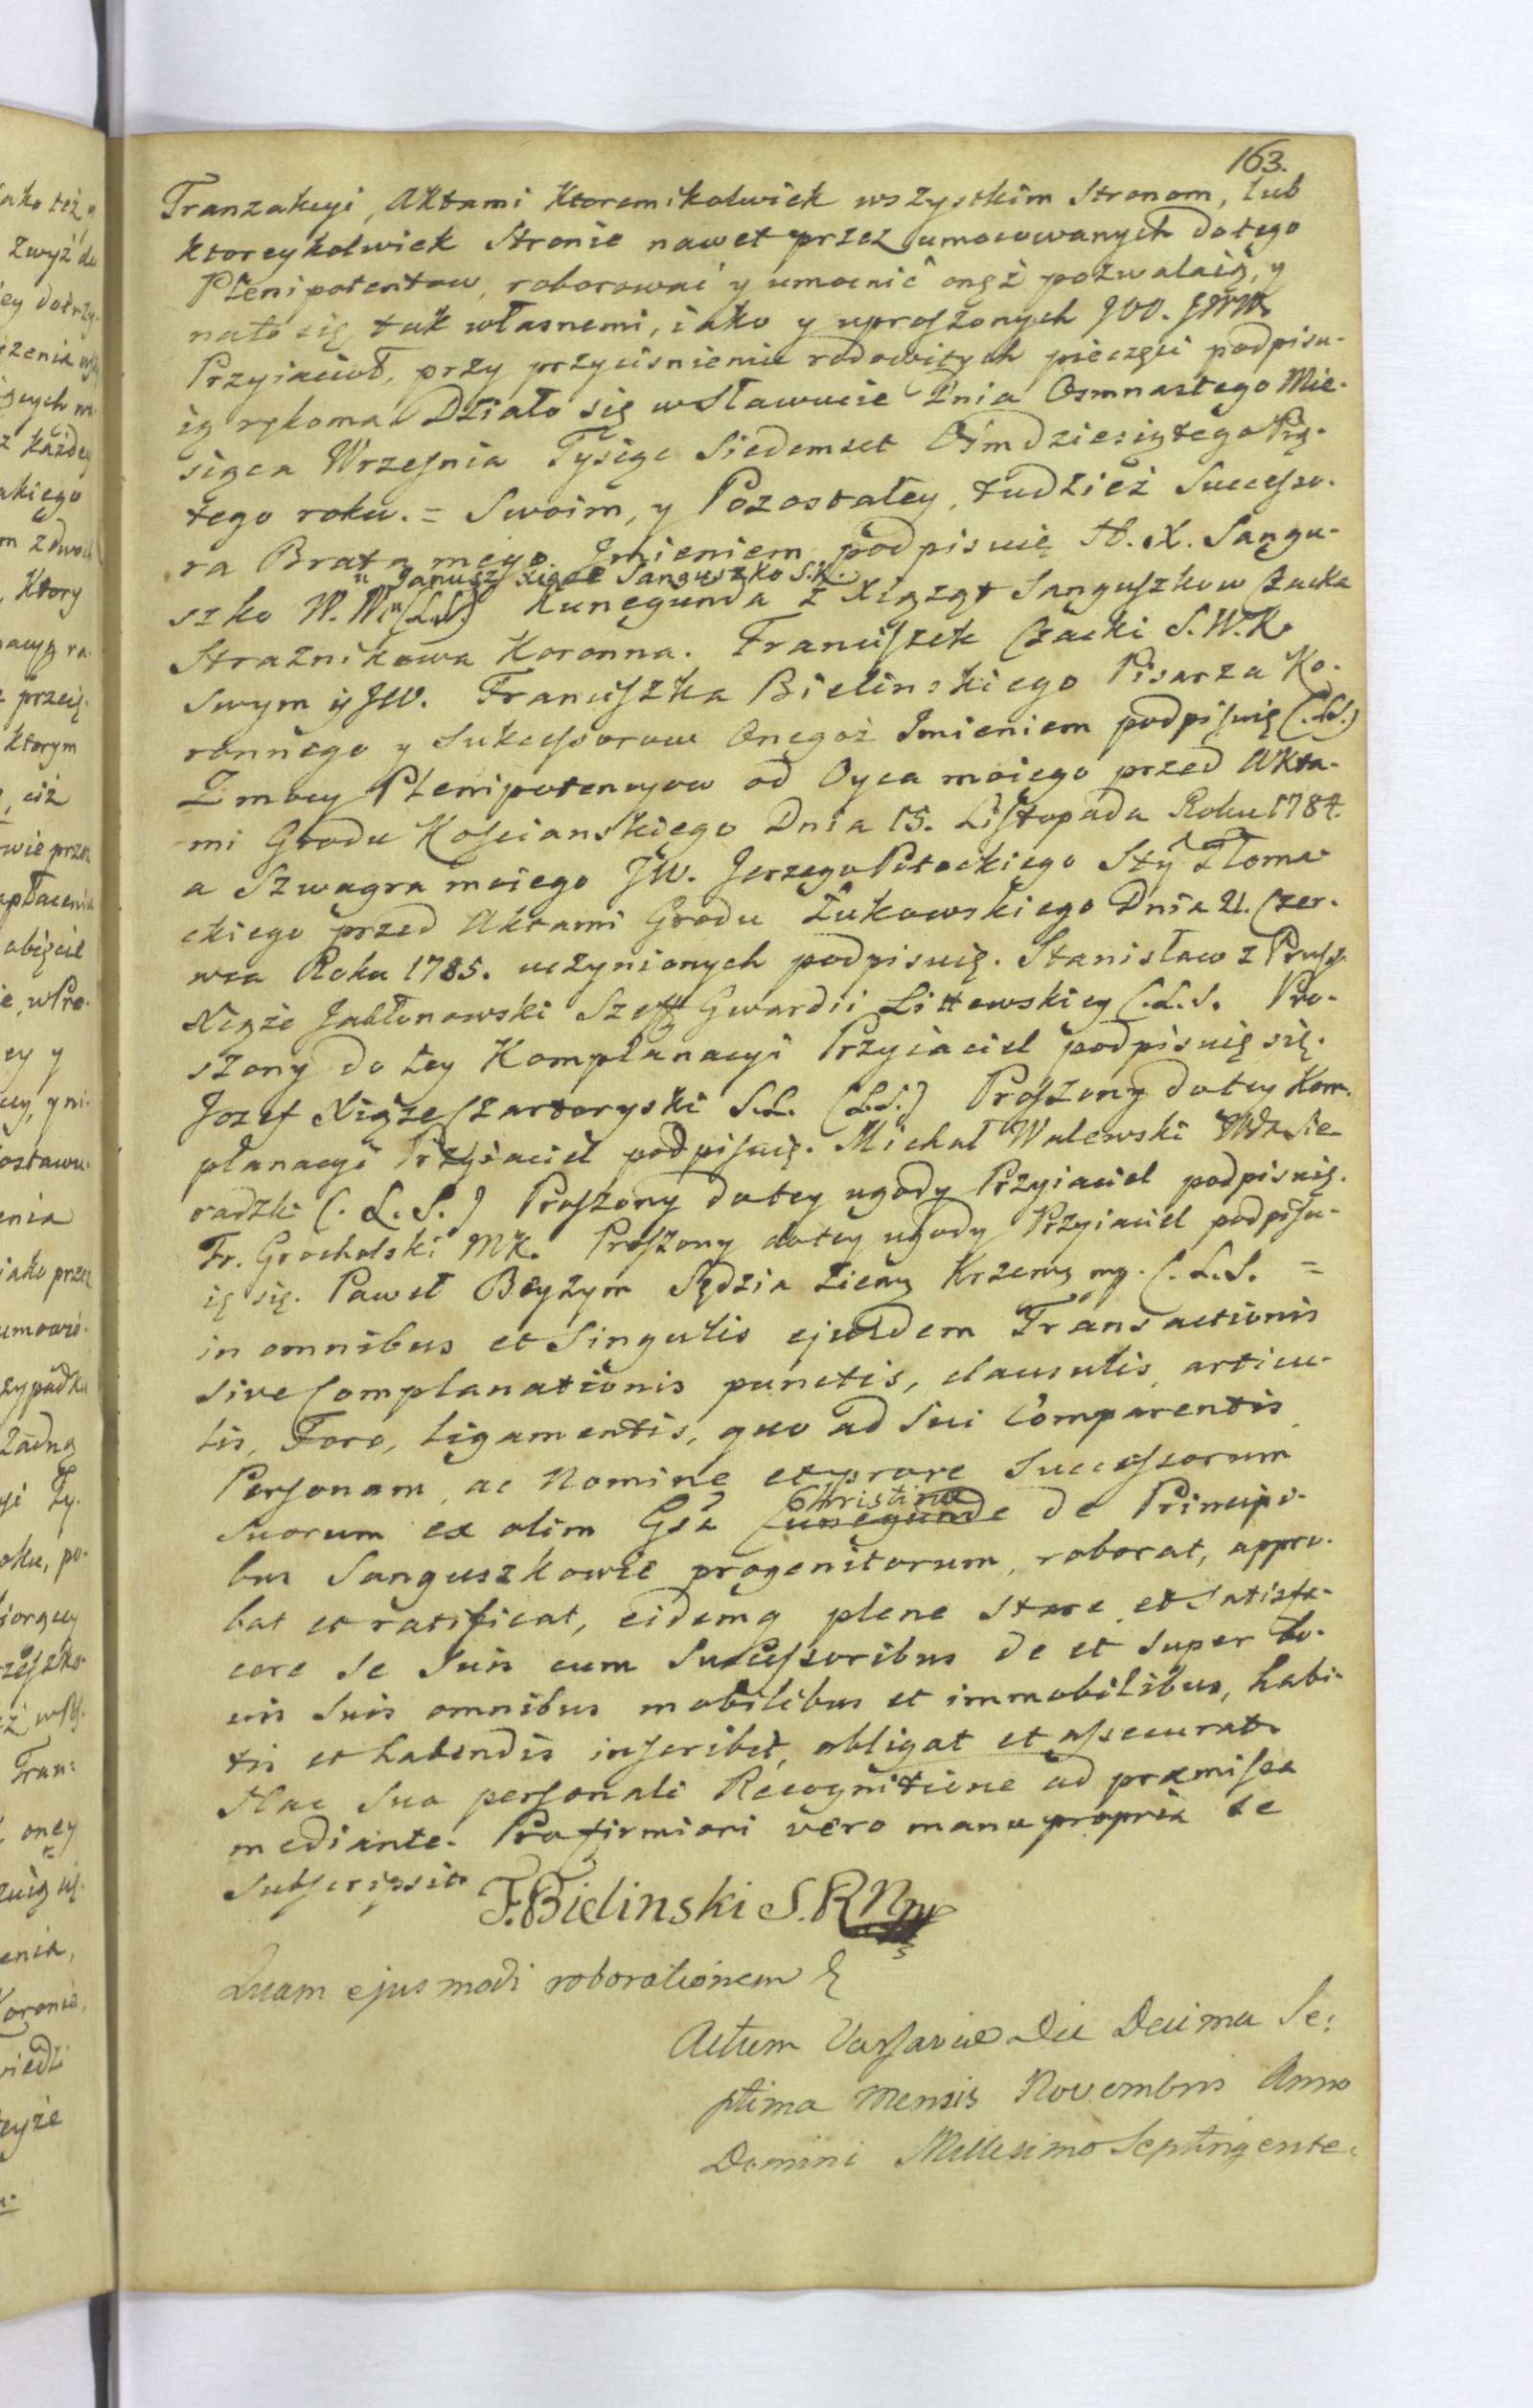 163.
Tranzakcyi, Aktami ktoremikolwiek wszystkim Stronom, lub
ktoreykolwiek Stronie nawet przez umocowanych do tego
Plenipotentow, roborować y umocnić onęż pozwalaią, y
na to się tak własnemi, iako y uproszonych JOO. JWW.
Przyiacioł, przy przycisnieniu rodowitych pieczęci podpisu-
ią rękoma. Działo się w Sławucie Dnia Osmnastego Mie-
siąca Wrzesnia Tysiąc Siedemset Osmdziesiątego Pią-
tego roku. = Swoim, y Pozostałey, tudzież Successo-
ra Brata mego Imieniem podpisuię H. X. Sangu-
Janusz Xiąże Sanguszko S.K.
szko W. W. (L.S.) Kunegunda z Xiążąt Sanguszkow Czacka
Strażnikowa Koronna. Franciszek Czacki S.W.K.
Swym y JW. Franciszka Bielinskiego Pisarza Ko-
ronnego y Sukcessorow Onegoż Imieniem podpisuię (.L.S.)
Z mocy Plenipotencyow od Oyca moiego przed Akta-
mi Grodu Kościanskiego Dnia 15. Listopada Roku 1784.
a Szwagra moiego JW. Jerzego Potockiego Stty Tłoma-
ckiego przed Aktami Grodu Łukowskiego Dnia 21. Czer-
wca Roku 1785. uczynionych podpisuię. Stanisław z Pruss
Xiąże Jabłonowski Szeff Gwardii Littewskiey (.L.S. Pro-
szony do tey Komplanacyi Przyiaciel podpisuię się.
Jozef Xiąże Czartoryski S.L. (L.S.) Proszony do tey Kom-
planacyi Przyiaciel podpisuię. Michał Walewski Wda Sie-
radzki (. L. S.) Proszony do tey ugody Przyiaciel podpisuię.
Fr. Grocholski MK. Proszony do tey ugody Przyiaciel podpisu-
ię się. Paweł Beyzym Sędzia Ziemy Krzemy mp. (.L.S. =
in omnibus et Singulis ejusdem Transactionis
sive Complanationis punctis, clausulis, articu-
lis, Foro, ligamentis, quo ad Sui Comparentis
Personam, ac Nomine et prore Successorum
Christina
Suorum ex olim Gsa Cunegunde de Principi-
bus Sanguszkowie progenitorum, roborat, appro-
bat et ratificat, eidemq plene Stare et satisfa-
cere Se Suis cum Successoribus de et super bo-
nis Suis omnibus mobilibus et immobilibus, habi-
tis et habendis inscribit, obligat et assecurat.
Hac Sua personali Recognitione ad præmissa
mediante. Pro firmiori vero manu propria se
Subscripsit.
F. Bielinski S. R N mp
Quam ejusmodi roborationem &
Actum Varsaviæ Die Decima Se-
ptima Mensis Novembris Anno
Domini Millesimo Septingente-